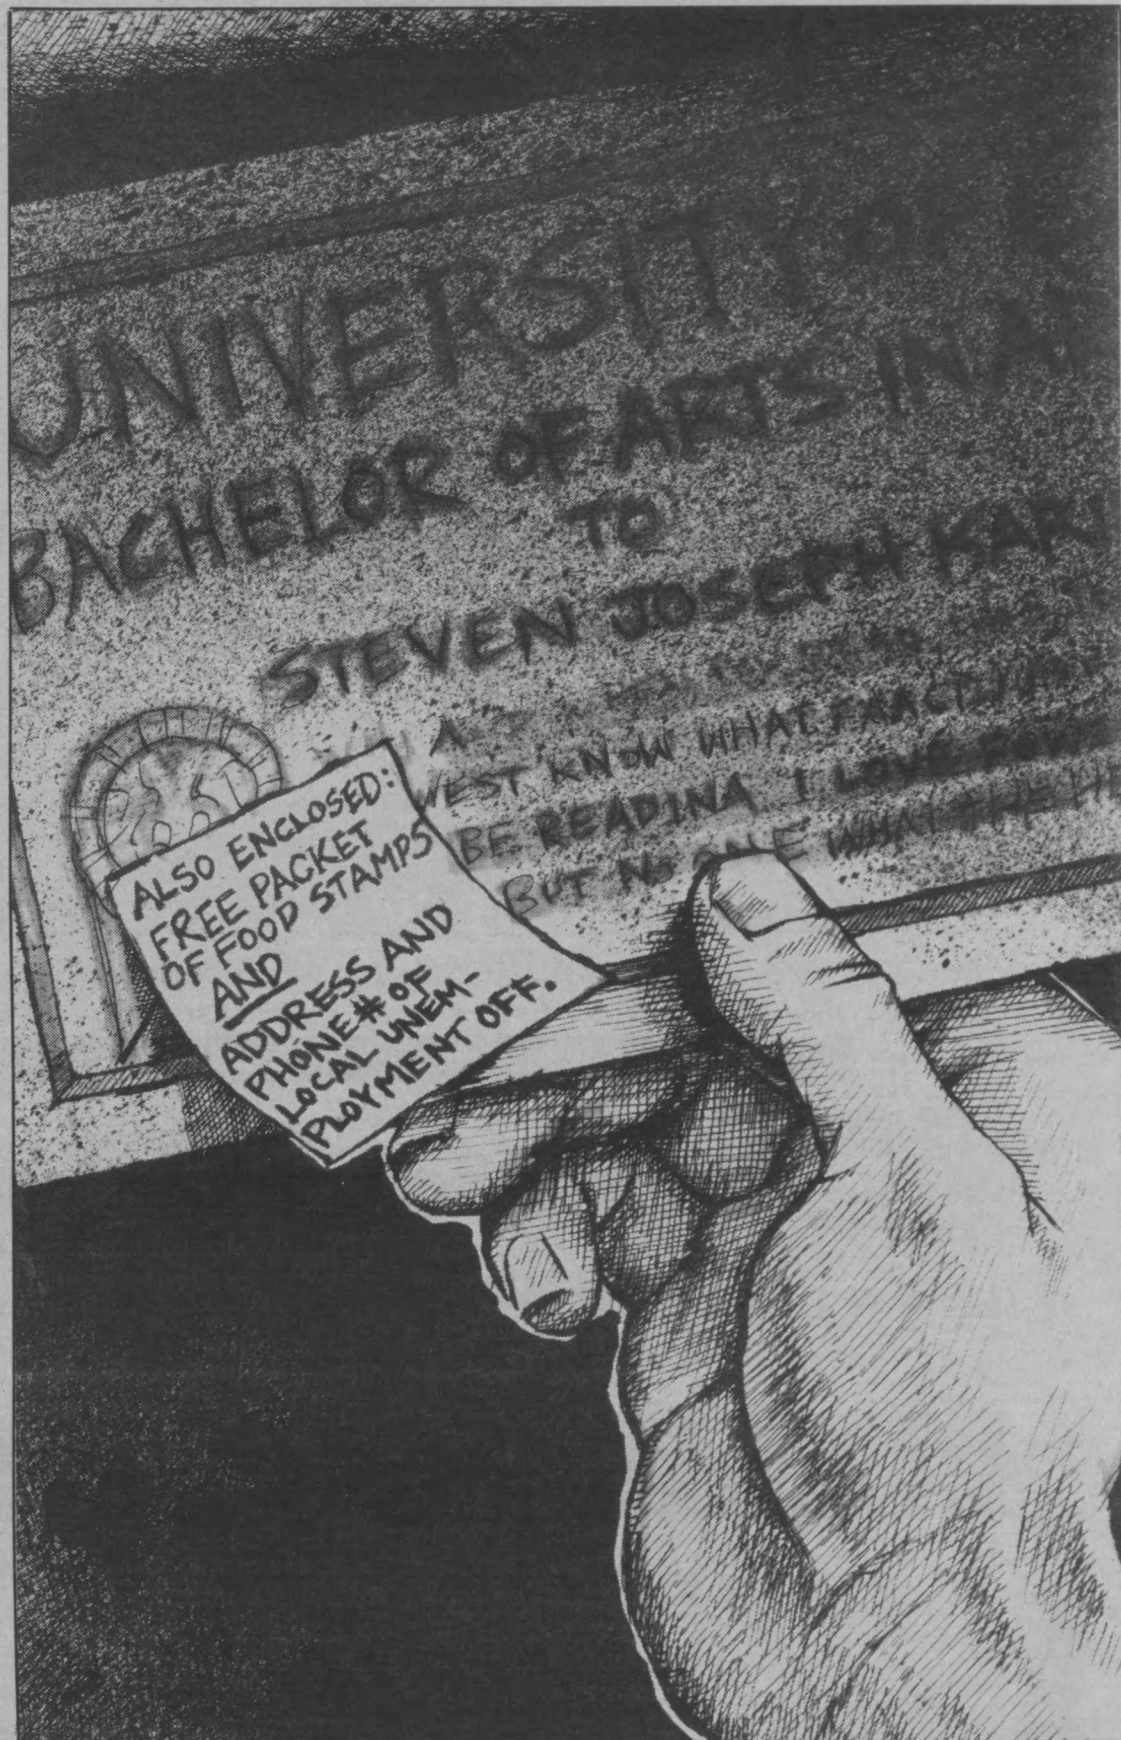 UNIVERSITY OF
BACHELOR OF ARTS IN
TO
STEVEN JOSEPH KARL
A
KNOW WHAT EXACTLY
BE READING I LOVE
BUT NO ONE WHAT THE HE
ALSO ENCLOSED:
FREE PACKET
OF FOOD STAMPS
AND
ADDRESS AND
PHONE # OF
LOCAL UNEM-
PLOYMENT OFF.